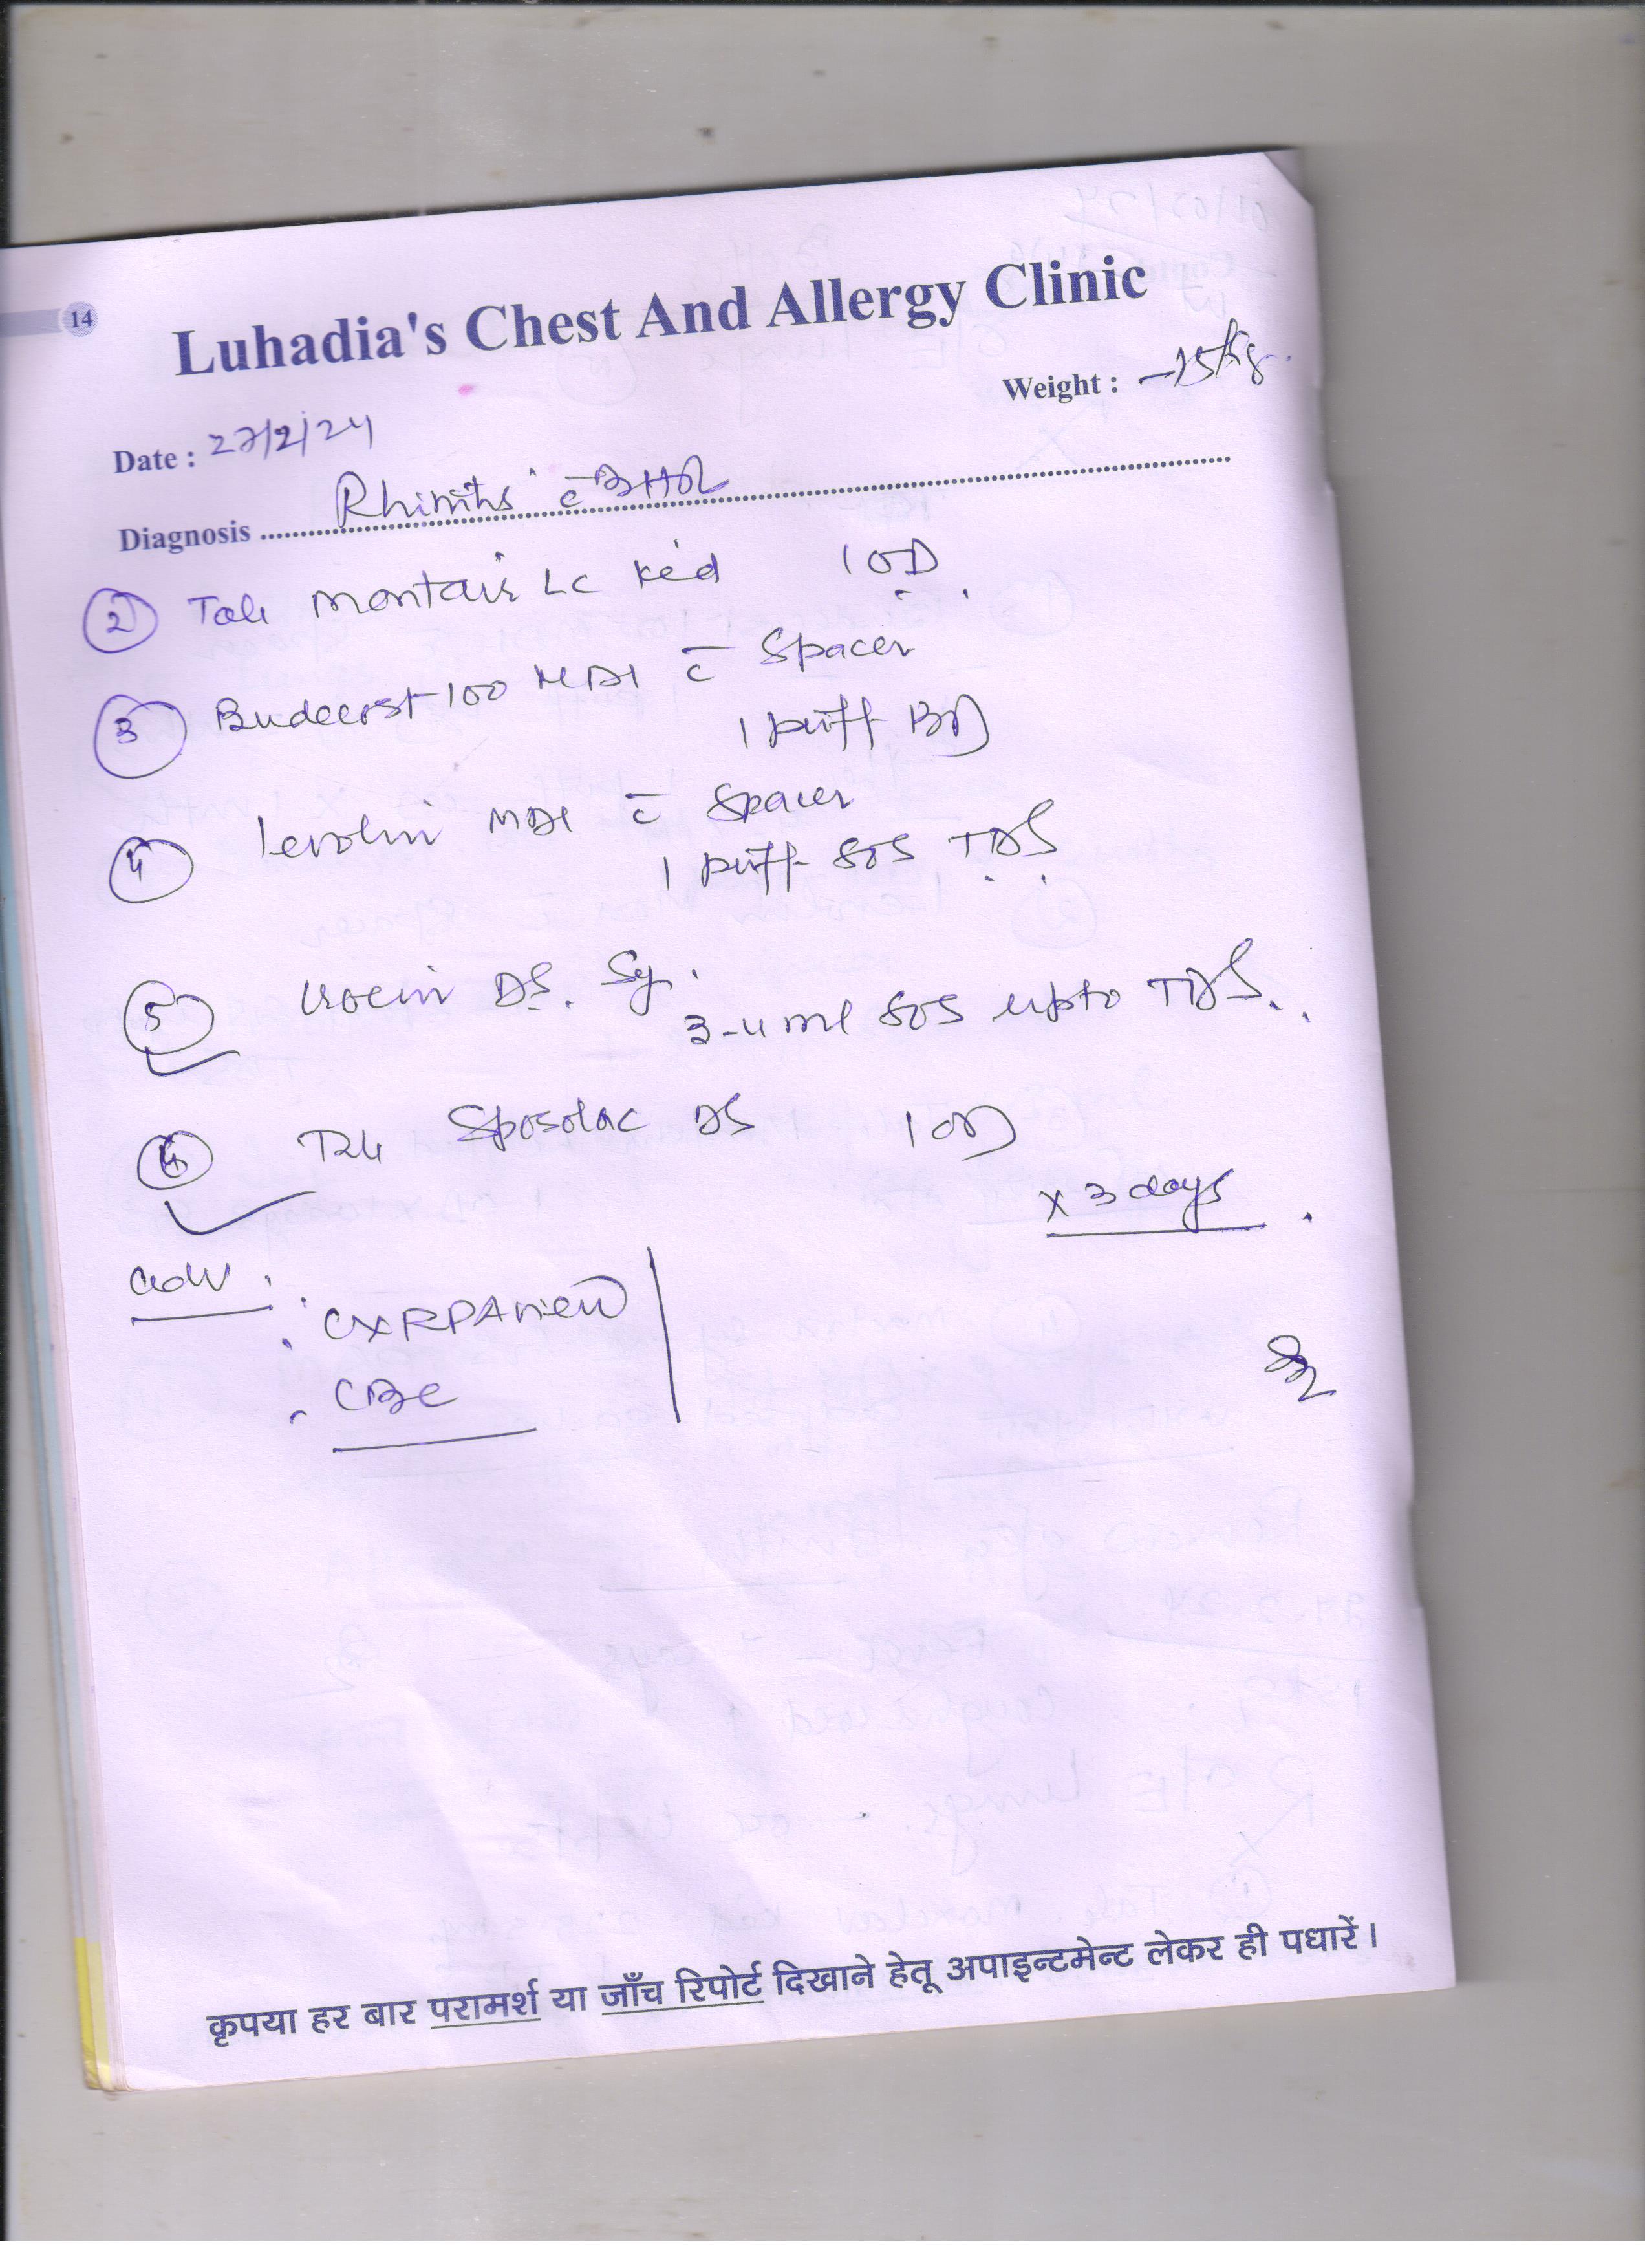 14
Luhadia's Chest And Allergy Clinic
Weight : - 15kg.
Date : 27/2/24
Diagnosis Rhinitis c̄ BHR
② Tab Montair LC Kid 1 OD.
③ Budecort 100 MDI c̄ Spacer
1 puff BD
④ levolin MDI c̄ Spacer
1 puff SOS TDS
⑤ Crocin DS. Sy.
3-4 ml SOS upto TDS.
Tab Sposolac DS 1 OD
x 3 days.
adv.
. CXR PA view
. CBC
कृपया हर बार परामर्श या जाँच रिपोर्ट दिखाने हेतू अपाइन्टमेन्ट लेकर ही पधारें।